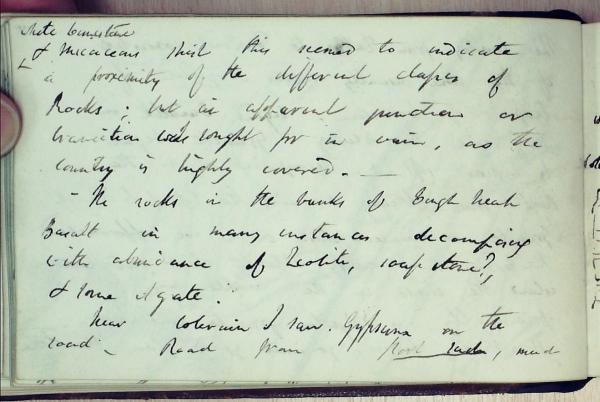 & micaceous shist this seemed to indicate
a proximity of the different classes of
Rocks; but an apparent junction or
transition was sought for in vain, as the
country is highly covered. —
- The rocks in the banks of Lough Neah
Basalt in many instances decomposing
with abundance of Zeolite, soapstone?,
& some Agate.
Near Colerain I saw Gypsum on the
road - Road from Port